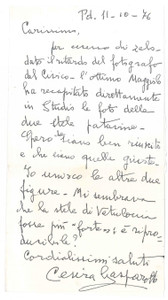 Pd. 11-10-76
Carissimo,
per eccesso di zelo
dato il ritardo del fotografo
del Civico - l'ottimo Maggiolo
ha recapitato direttamente
in Studio le foto delle
due stele patavine.
Spero siano ben riuscite
e che siano quelle giuste.
Io unisco le altre due
figure - Mi sembrava
che la stele di Vetulonia
fosse più
duscibile?
Cordialissimi saluti
Cesira Gasparotto